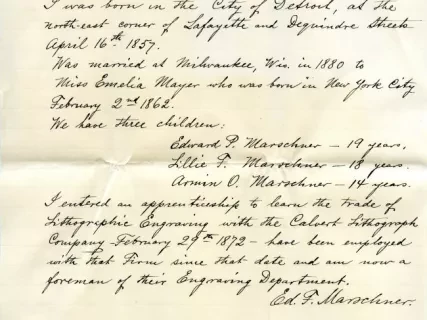 I was born in the City of Detroit, at the
north-east corner of Lafayette and Dequindre Streets
April 16th 1857.
Was married at Milwaukee, Wis. in 1880 to
Miss Emelia Mayer who was born in New York City
February 2nd 1862.
We have three children:
Edward P. Marschner - 19 years,
Lillie F. Marschner - 18 years.
Arwin O. Marschner - 14 years.
I entered an apprenticeship to learn the trade of
Lithographic Engraving with the Calvert Lithograph
Company February 29th 1872 - have been employed
with that Firm since that date and am now a
foreman of their Engraving Department.
Ed. F. Marschner.